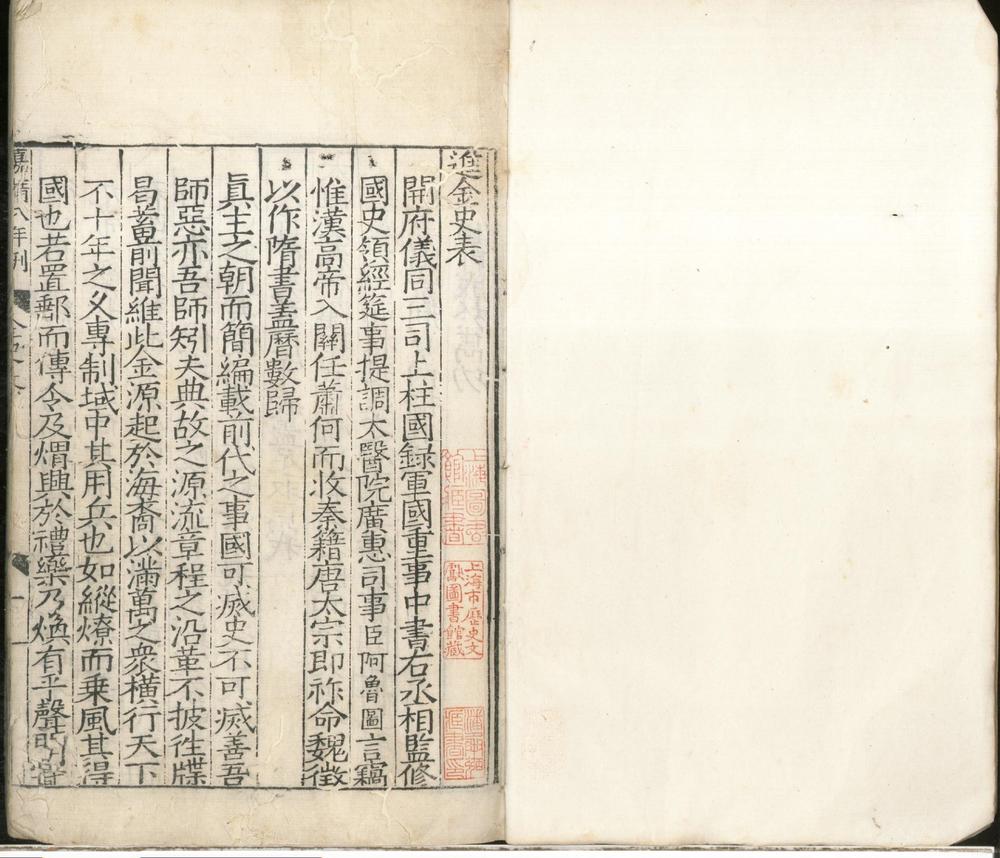 進金史表
開府儀同三司上柱國録軍國重事中書右丞相監修
國史領經筵事提調太醫院廣惠司事臣阿魯圖言竊
惟漢高帝入關任蕭何而收秦籍唐太宗即祚命魏徵
以作隋書盖曆數歸
真主之朝而簡編載前代之事國可㓕史不可㓕善吾
師惡亦吾師矧夫典故之源流章程之沿革不披徃牒
曷蓄前聞維此金源起於海裔以滿萬之衆橫行天下
不十年之乆專制域中其用兵也如縱燎而乗風其得
國也若置郵而傳令及煟興於禮樂乃焕有乎聲明
嘉靖八年刊
上海圖書館藏書
上海市歷史文獻圖書館藏